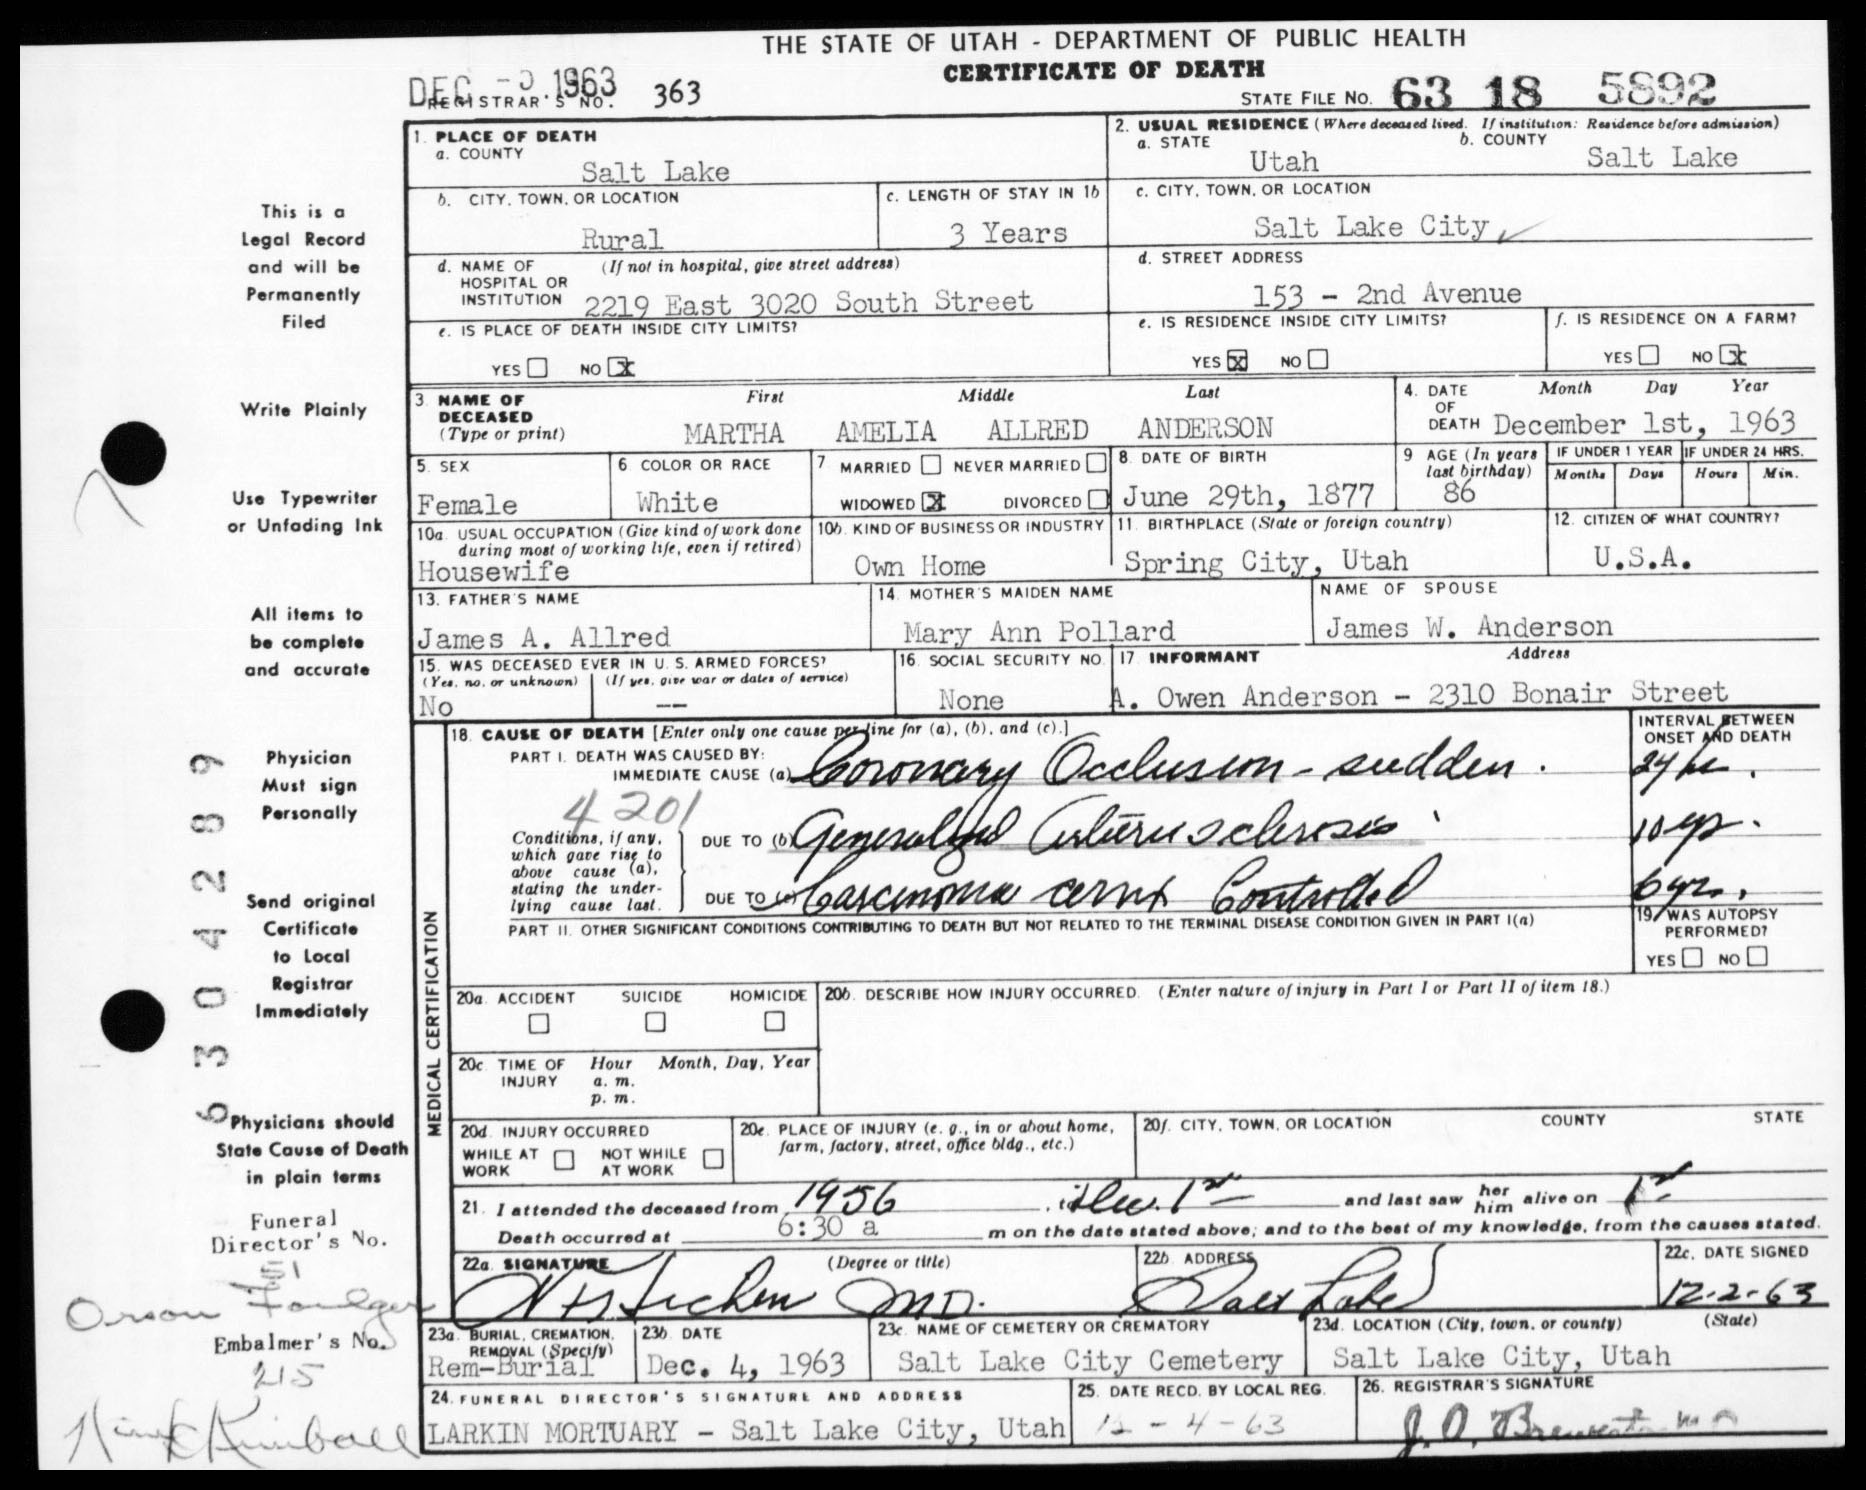 THE STATE OF UTAH - DEPARTMENT OF PUBLIC HEALTH
CERTIFICATE OF DEATH
DEC 1963
REGISTRAR'S NO. 363
STATE FILE NO. 63 18 5892
This is a
Legal Record
and will be
Permanently
Filed
Write Plainly
Use Typewriter
or Unfading Ink
All items to
be complete
and accurate
Physician
Must sign
Personally
Send original
Certificate
to Local
Registrar
Immediately
Physicians should
State Cause of Death
in plain terms
Funeral
Director's No.
51
Orson Foulger
Embalmer's No.
215
Kimball
6304289
1. PLACE OF DEATH
a. COUNTY
Salt Lake
b. CITY, TOWN, OR LOCATION
Rural
c. LENGTH OF STAY IN 1b
3 Years
d. NAME OF HOSPITAL OR INSTITUTION (If not in hospital, give street address)
2219 East 3020 South Street
e. IS PLACE OF DEATH INSIDE CITY LIMITS?
YES NO X
2. USUAL RESIDENCE (Where deceased lived. If institution: Residence before admission)
a. STATE
Utah
b. COUNTY
Salt Lake
c. CITY, TOWN, OR LOCATION
Salt Lake City
d. STREET ADDRESS
153 - 2nd Avenue
e. IS RESIDENCE INSIDE CITY LIMITS?
YES X NO
f. IS RESIDENCE ON A FARM?
YES NO X
3. NAME OF DECEASED (Type or print)
First Middle Last
MARTHA AMELIA ALLRED ANDERSON
4. DATE OF DEATH
Month Day Year
December 1st, 1963
5. SEX
Female
6 COLOR OR RACE
White
7 MARRIED NEVER MARRIED
WIDOWED X DIVORCED
8. DATE OF BIRTH
June 29th, 1877
9 AGE (In years last birthday)
86
IF UNDER 1 YEAR
Months Days
IF UNDER 24 HRS.
Hours Min.
10a. USUAL OCCUPATION (Give kind of work done during most of working life, even if retired)
Housewife
10b. KIND OF BUSINESS OR INDUSTRY
Own Home
11. BIRTHPLACE (State or foreign country)
Spring City, Utah
12. CITIZEN OF WHAT COUNTRY?
U.S.A.
13. FATHER'S NAME
James A. Allred
14. MOTHER'S MAIDEN NAME
Mary Ann Pollard
NAME OF SPOUSE
James W. Anderson
15. WAS DECEASED EVER IN U. S. ARMED FORCES?
(Yes, no, or unknown) (If yes, give war or dates of service)
No --
16. SOCIAL SECURITY NO.
None
17 INFORMANT Address
A. Owen Anderson - 2310 Bonair Street
MEDICAL CERTIFICATION
18. CAUSE OF DEATH [Enter only one cause per line for (a), (b), and (c).]
INTERVAL BETWEEN ONSET AND DEATH
PART I. DEATH WAS CAUSED BY:
IMMEDIATE CAUSE (a) Coronary Occlusion - sudden. 24 hr.
4201
Conditions, if any, which gave rise to above cause (a), stating the underlying cause last.
DUE TO (b) Generalized Arteriosclerosis 10 yr.
DUE TO (c) Carcinoma cervix Controlled 6 yrs.
PART II. OTHER SIGNIFICANT CONDITIONS CONTRIBUTING TO DEATH BUT NOT RELATED TO THE TERMINAL DISEASE CONDITION GIVEN IN PART I(a)
19. WAS AUTOPSY PERFORMED?
YES NO
20a. ACCIDENT SUICIDE HOMICIDE
20b. DESCRIBE HOW INJURY OCCURRED. (Enter nature of injury in Part I or Part II of item 18.)
20c. TIME OF INJURY Hour Month, Day, Year
a. m.
p. m.
20d. INJURY OCCURRED
WHILE AT WORK NOT WHILE AT WORK
20e. PLACE OF INJURY (e. g., in or about home, farm, factory, street, office bldg., etc.)
20f. CITY, TOWN, OR LOCATION COUNTY STATE
21. I attended the deceased from 1956, Dec. 1st and last saw her him alive on 1st
Death occurred at 6:30 a m on the date stated above; and to the best of my knowledge, from the causes stated.
22a. SIGNATURE (Degree or title)
M.D.
22b. ADDRESS
Salt Lake
22c. DATE SIGNED
12-2-63
23a. BURIAL, CREMATION, REMOVAL (Specify)
Rem-Burial
23b. DATE
Dec. 4, 1963
23c. NAME OF CEMETERY OR CREMATORY
Salt Lake City Cemetery
23d. LOCATION (City, town, or county) (State)
Salt Lake City, Utah
24. FUNERAL DIRECTOR'S SIGNATURE AND ADDRESS
LARKIN MORTUARY - Salt Lake City, Utah
25. DATE RECD. BY LOCAL REG.
12-4-63
26. REGISTRAR'S SIGNATURE
J. O.